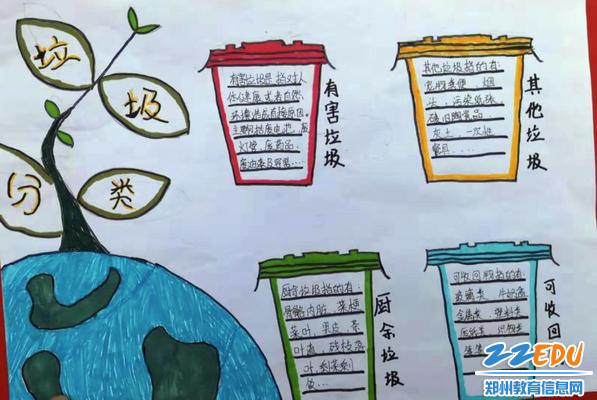 垃圾
分类
有害垃圾是指对人
体健康或者自然
环境造成直接
主要包括废电池、
灯管、废药品、
有害垃圾
其他垃圾指的有:
烟
头、污染纸张、
破旧陶瓷品
灰土、一次性
餐具....
其他垃圾
厨余垃圾指的有:
骨骼内脏、菜梗
菜叶、果皮、茶
叶渣、残枝落
叶、剩菜剩
饭...
厨余垃圾
可收回物指的有:
玻璃类、牛奶盒
金属类、塑料类
废纸类、织物类
可收回
ZZEDU
郑州教育信息网